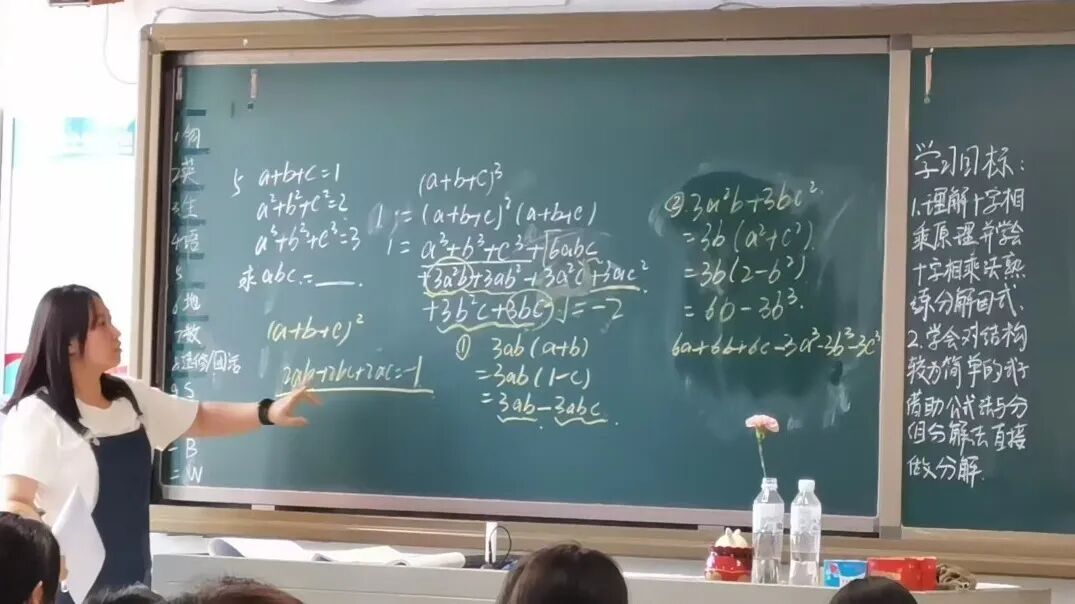 1 物
2 英
3 生
4 语
5
6 地
7 数
8 选修/团活
9 S
- B
= W
5 a+b+c=1
a²+b²+c²=2
a³+b³+c³=3
求abc=___.
(a+b+c)²
2ab+2bc+2ac=-1
(a+b+c)³
1=(a+b+c)²(a+b+c)
1=a³+b³+c³+[6abc
+3a²b+3ab²+3a²c+3ac²
+3b²c+3bc²]=-2
① 3ab(a+b)
=3ab(1-c)
=3ab-3abc
② 3a²b+3bc²
=3b(a²+c²)
=3b(2-b²)
=6b-3b³
6a+6b+6c-3a³-3b³-3c³
学习目标:
1.理解十字相
乘原理并学会
十字相乘法熟
练分解因式.
2.学会对结构
较为简单的式子
借助公式法与分
组分解法直接
做分解.